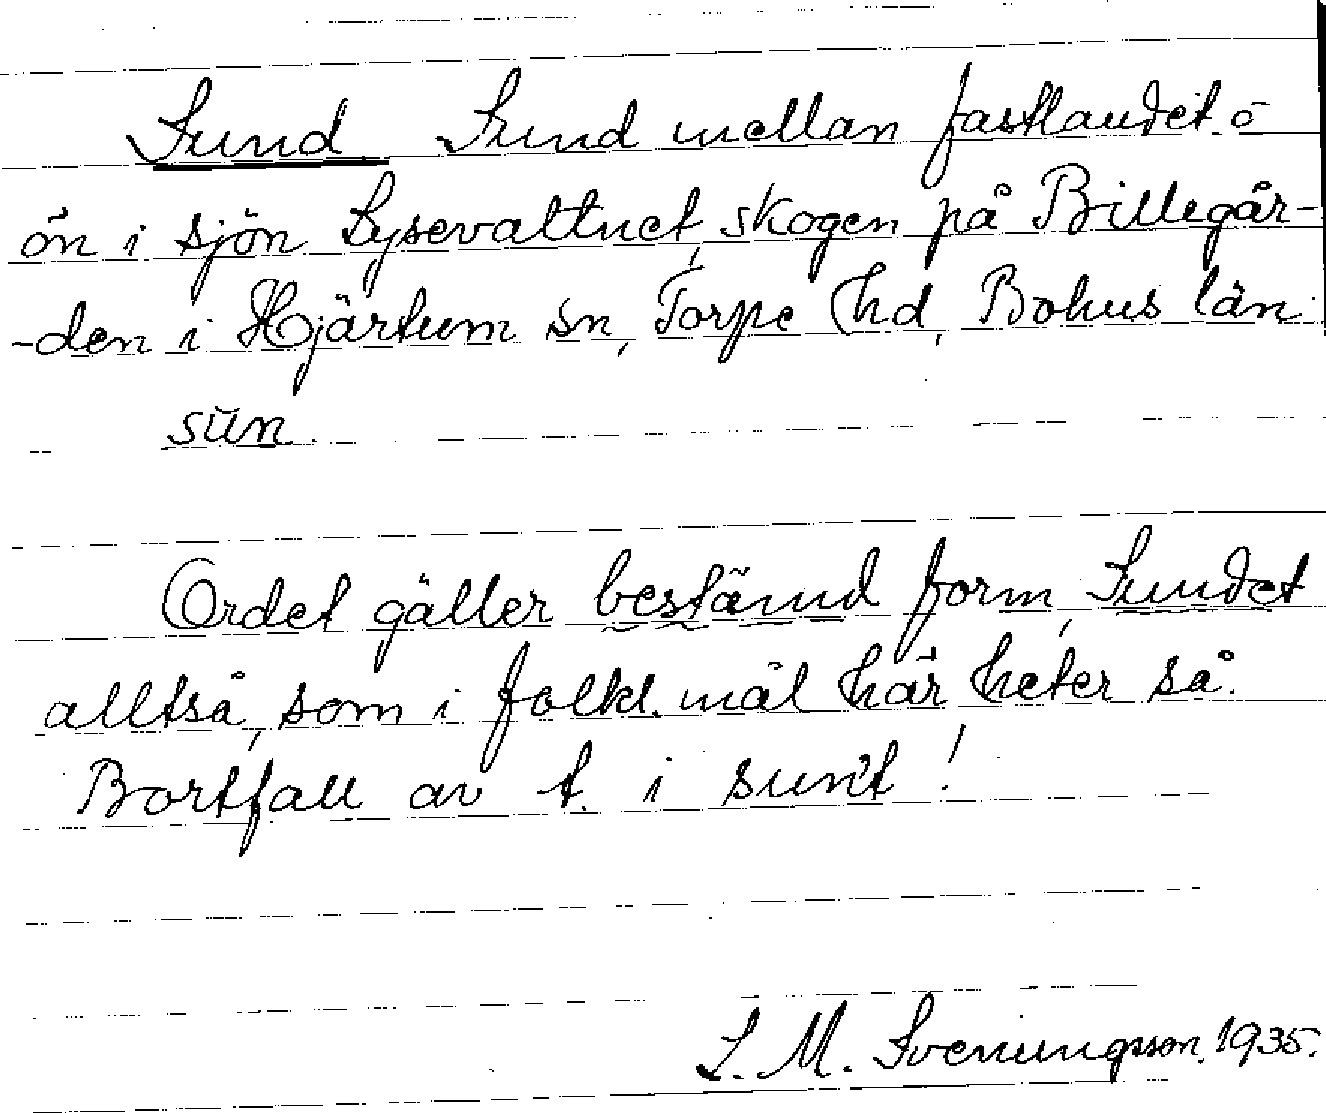 Sund Sund mellan fastlandet o
ön i sjön Lysevattnet, skogen på Billegår-
-den i Hjärtum sn, Torpe hd, Bohus län
sŭn.
Ordet gäller bestämd form, Sundet
alltså, som i folkl. mål här heter så.
Bortfall av t. i sun't!
S. M. Svenungsson. 1935.